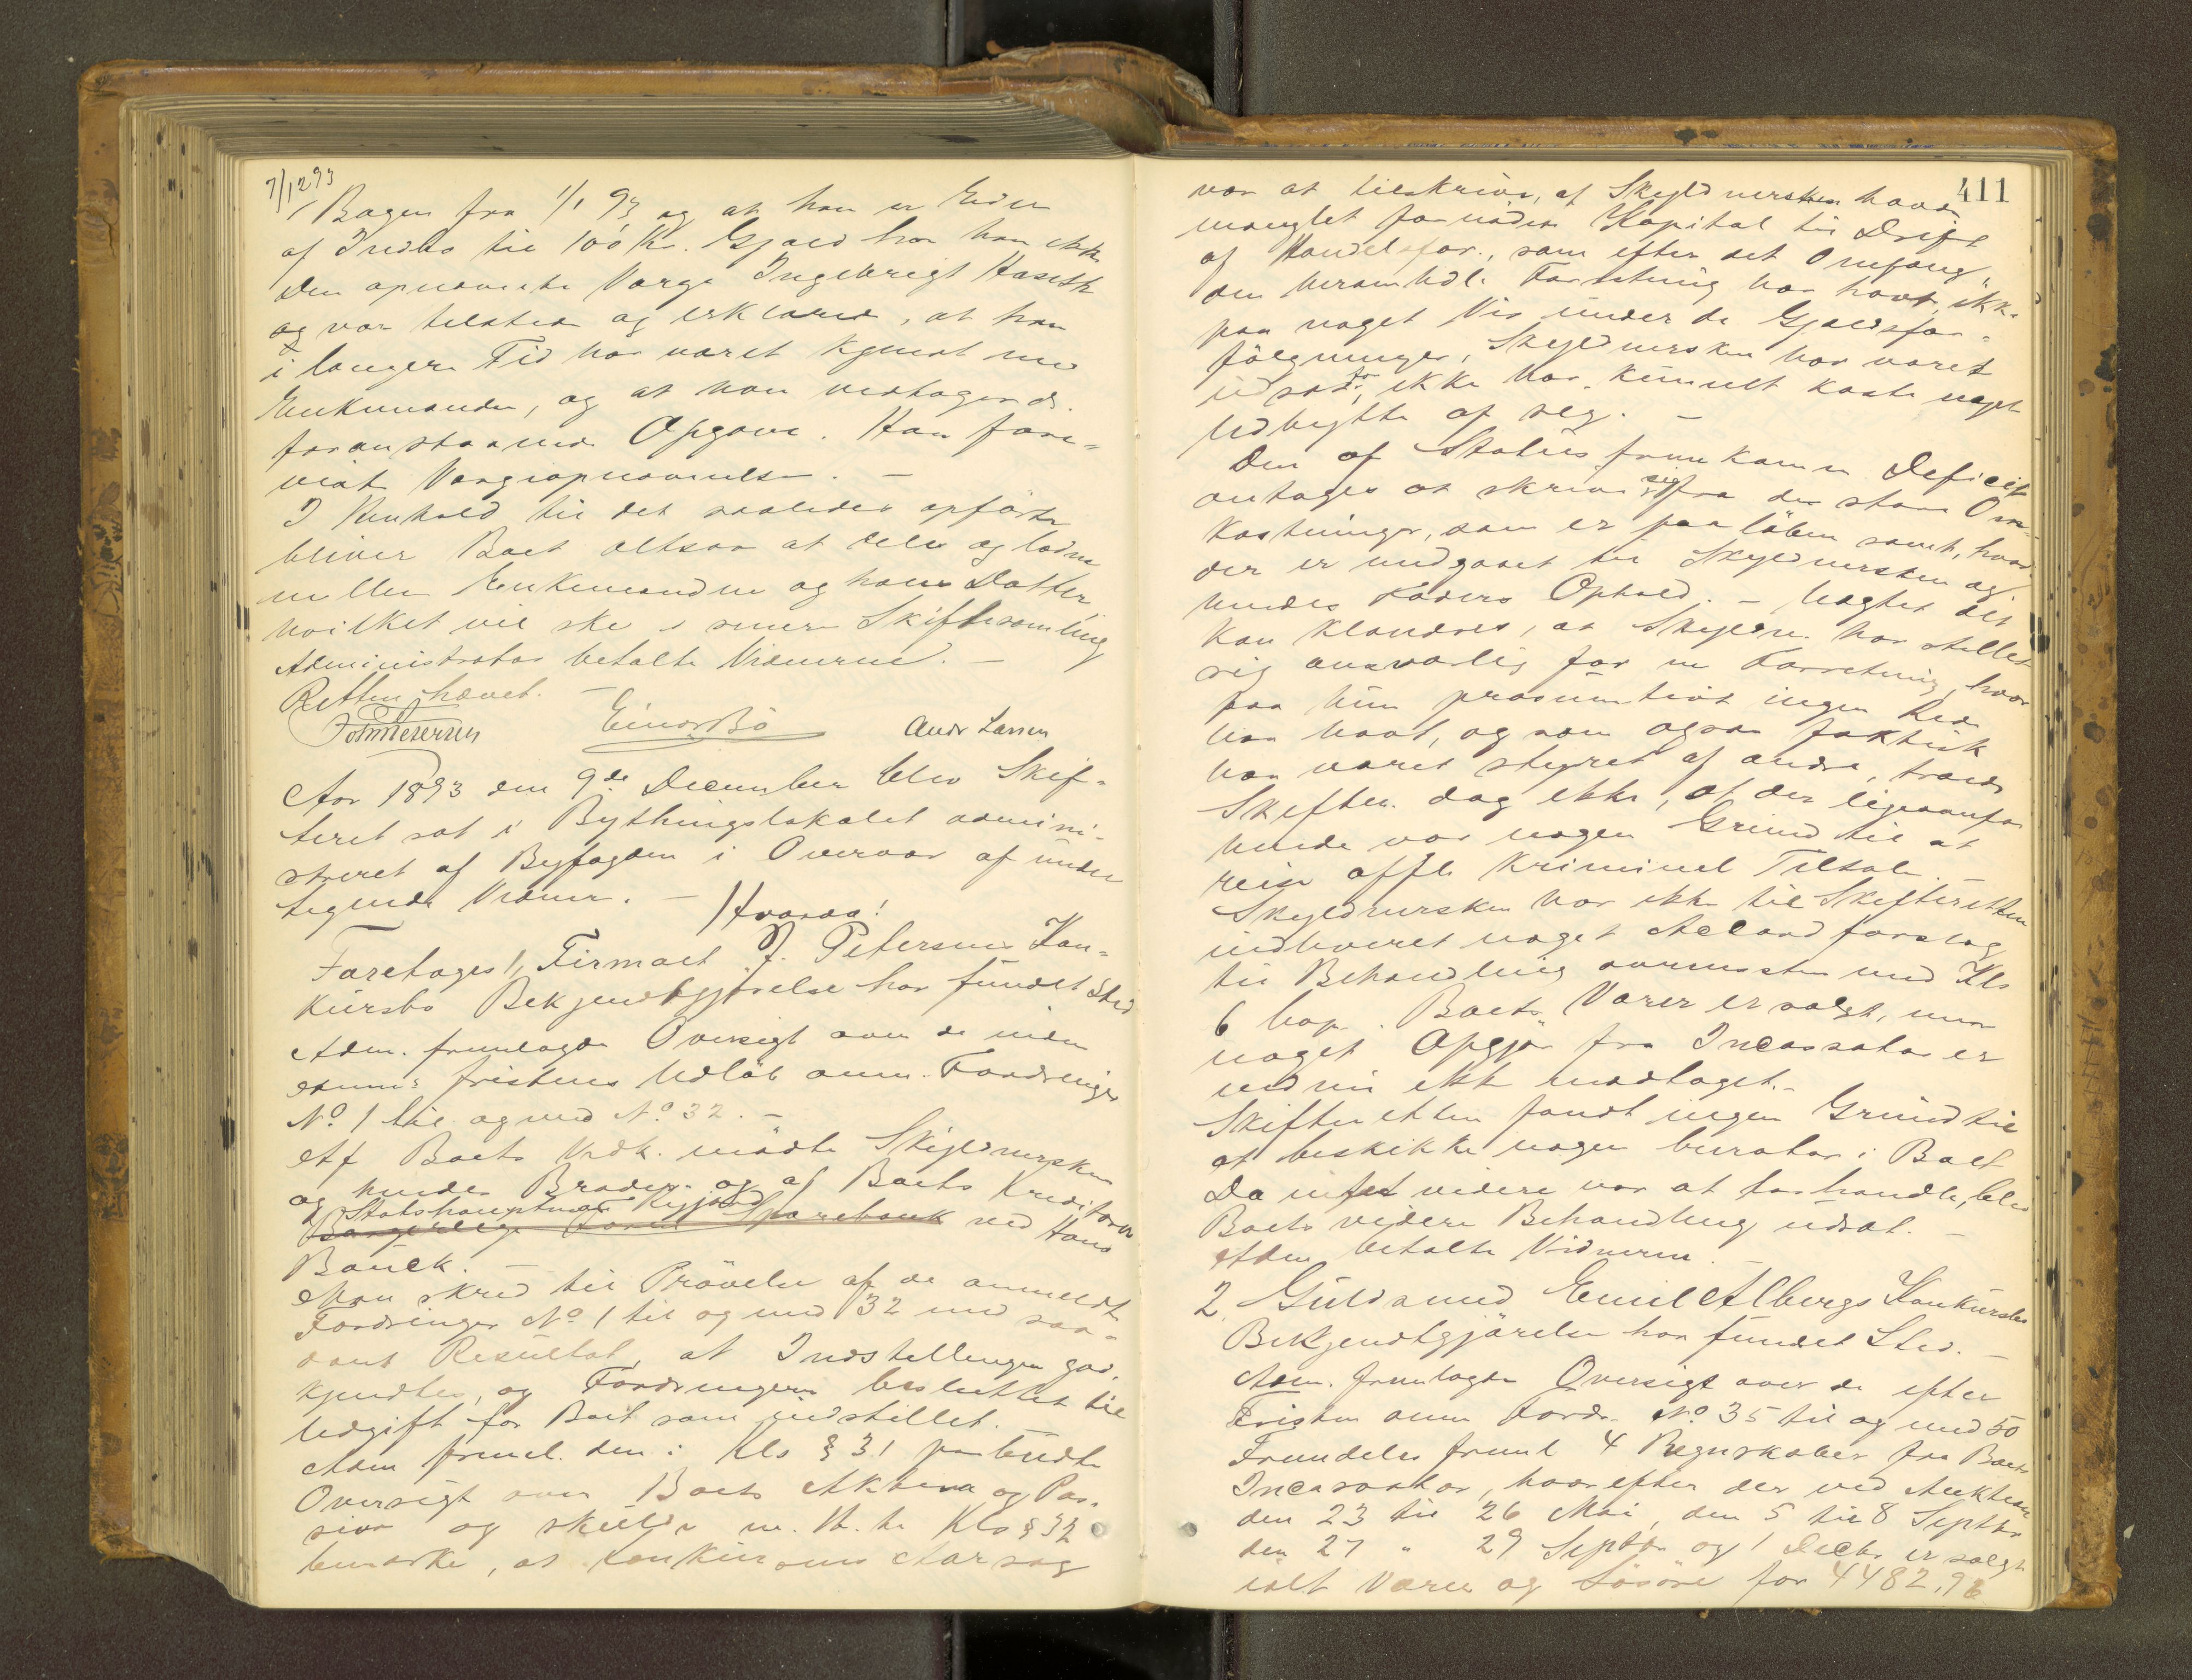 7/12 93
Bogen fra 1/1 93 og at han er Eier
af Indbo til 100 Kr. Gjæld har han ikke
Den opnævnte Værge Ingebrigt Haseth
og var tilstede og erklærede, at han
i længere Tid har været kjendt med
Enkemanden, og at han vedtager d.
foranstaaende Opgave. Han fore-
viste Værgeopnævnelse. —
I Henhold til det saaledes opførte
bliver Boet altsaa at dele og lodne
mellem Enkemanden og hans Datter
hvilket vil ske i senere Skiftesamling
Administrator betalte Vidnerne. —
Retten hævet. —
Einar Bö Andr Larsen
Aar 1893 den 9de December blev Skif-
teret sat i Bythingslokalet admini-
streret af Byfogden i Overvær af under
tegnede Vidner. —
Hvorda!
Foretoges 1, Firmaet J. Petersens Kon-
kursbo Bekjendtgjørelse har fundet Sted
Adm. fremlagde Oversigt over de inden
anm. fristens Udløb anm. Fordringer
No 1 til og med No 32. —
Af Boets Vedk. mødte Skyldnersken
og hendes Broder og af Boets Kreditorer
Statshauptmand
Sparebank ved Hans
Bauck. —
Man skred til Prøvelse af de anmeldte
Fordringer No 1 til og med 32 med saa-
dant Resultat, at Indstillingen god-
kjendtes, og Fordringerne besluttet til
Udgift for Boet som indstillet. —
Adm freml. den i Kls § 31 paabudte
Oversigt over Boets Aktiva og Pas-
siva og skulde m. H. t. Kls § 32
bemærke, at Konkursens Aarsag
411
var at tilskrive, at Skyldnersken havde
manglet fornøden Kapital til Drift
af Handelsfor., som efter det Omfang,
den heromhdl. Forretning har havt, ikke
paa noget Vis under de Gjældsfor-
følgninger, Skyldnersken har været
udsat for, ikke har kunnet kaste noget
Udbytte af seg. —
Den af Status fremkomne Deficit
antages at skrive sig fra de store Om-
kostninger, som er paaløben samt, hvad
der er medgaaet til Skyldnersken og
hendes Faders Ophold. — Uagtet det
kan klandres, at Skyldn. har stillet
sig ansvarlig for en Forretning, hvor
paa hun præsumtivt ingen Rede
har havt, og som ogsaa faktisk
har været styret af andre, troede
Skifter. dog ikke, at der ligeoverfor
hende var nogen Grund til at
reise offtl. kriminel Tiltale. —
Skyldnersken har ikke til Skifteretten
indleveret noget Accordforslag
til Behandling overensstem med Kls
6 Cap. Boets Varer er solgt, men
noget Opgjør fra Incassator er
endnu ikke modtaget. —
Skifteretten fandt ingen Grund til
at beskikke nogen Curator i Boet
Da intet videre var at forhandle, blev
Boets videre Behandling udsat. —
Adm. betalte Vidnerne
2. Guldsmed Emil Albergs Konkursbo
Bekjendtgjørelse har fundet Sted. —
Adm. fremlagde Oversigt over de efter
Fristen anm Fordr. No 35 til og med 50
Fremdeles freml 4 Regnskaber fra Boets
Incassator, hvorefter der ved Auktion
den 23 til 26 Mai, den 5 til 8 Septbr
den 27 " 29 Septbr og 1 Decbr er solgt
ialt Varer og Løsøre for 4482,96